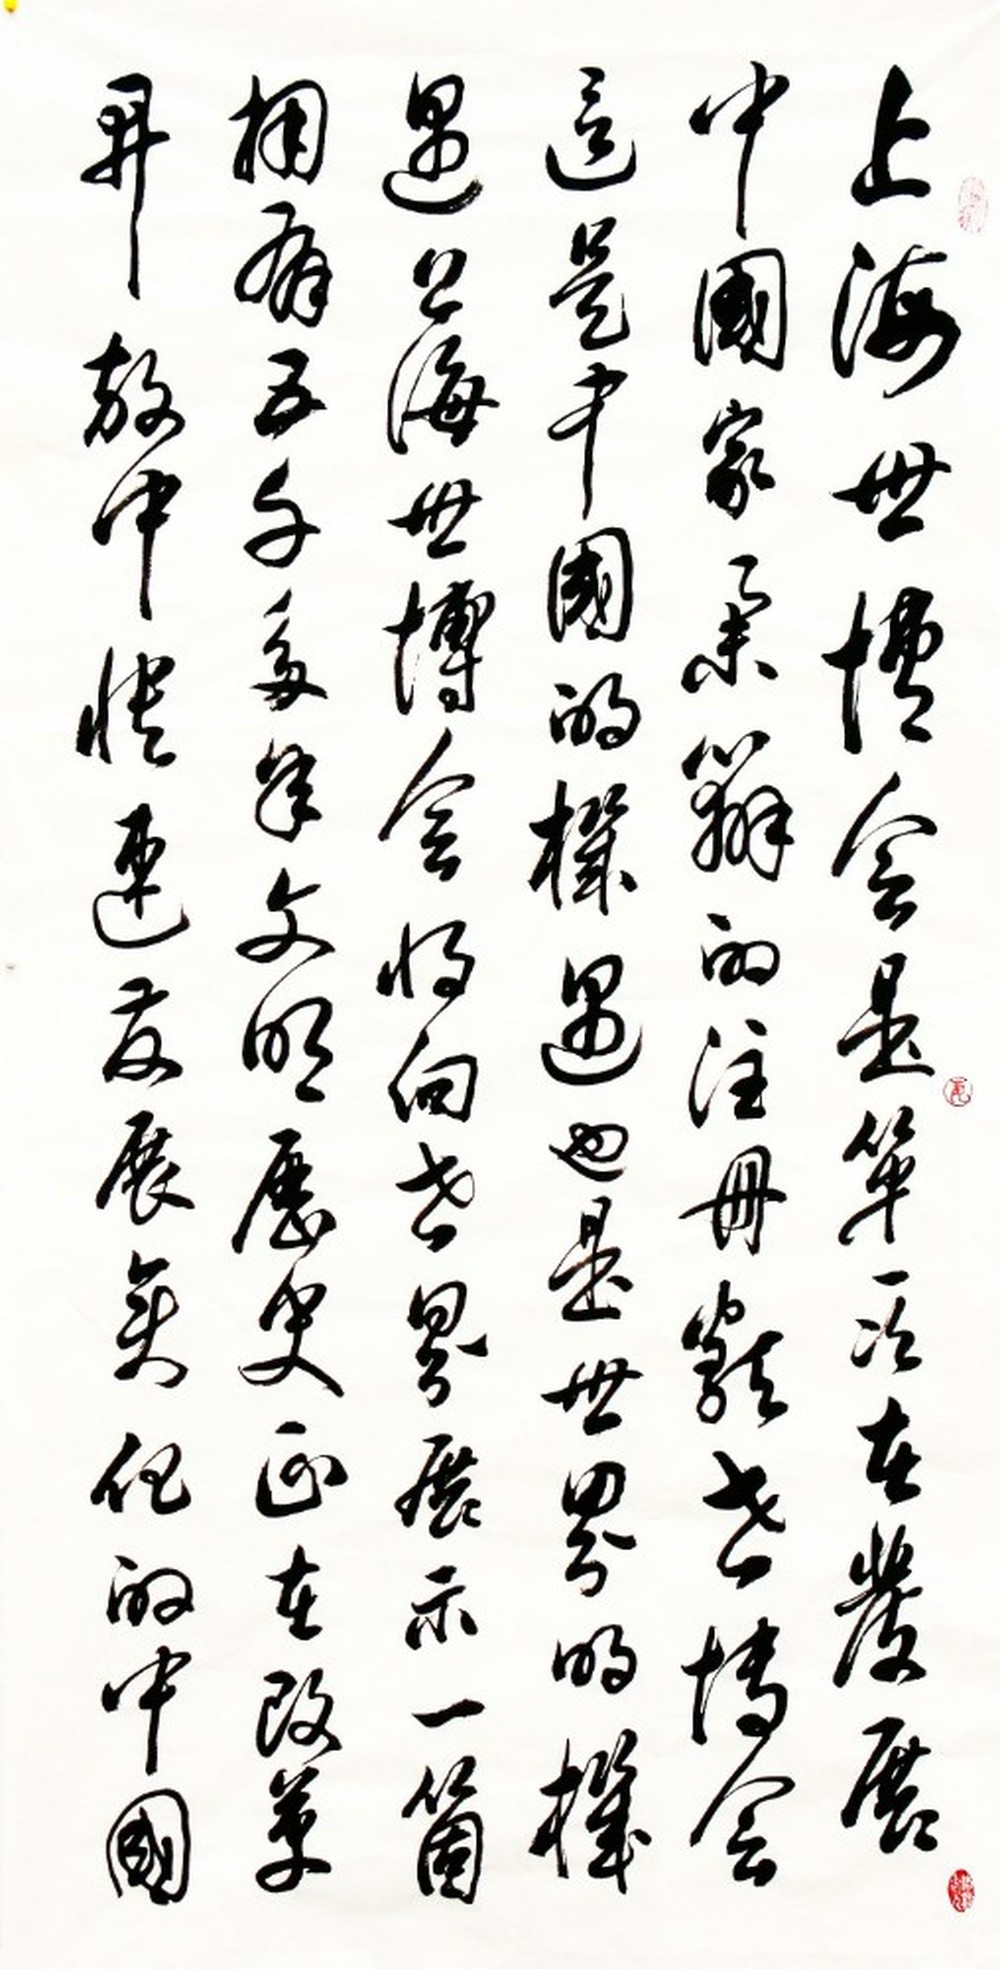 上海世博会是第一次在發展
中國家舉辦的注册類世博会
這是中國的機遇也是世界的機
遇上海世博会将向世界展示一箇
拥有五千多年文明歷史正在改革
开放中快速发展变化的中國